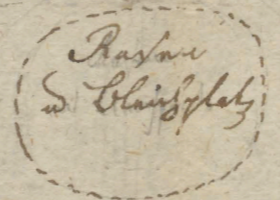 Rasen
u Bleichplatz